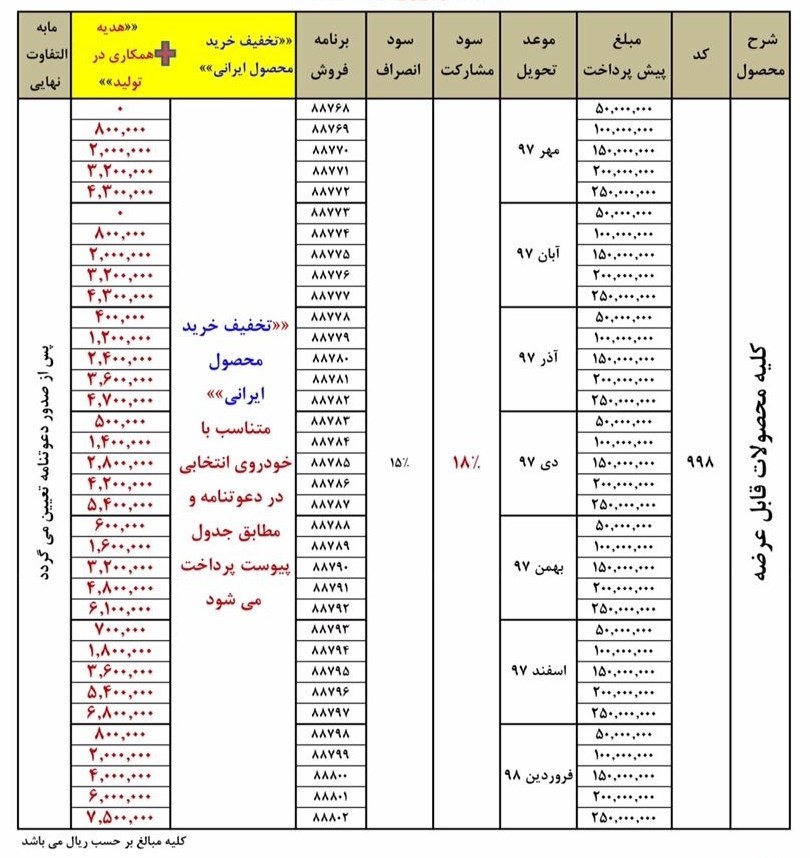 شرح محصول	کد	مبلغ پیش پرداخت	موعد تحویل	سود مشارکت	سود انصراف	برنامه فروش	««تخفیف خرید محصول ایرانی»» + ««هدیه همکاری در تولید»»	مابه التفاوت نهایی
کلیه محصولات قابل عرضه	۹۹۸	۱۸٪	۱۵٪
««تخفیف خرید
محصول
ایرانی»»
متناسب با
خودروی انتخابی
در دعوتنامه و
مطابق جدول
پیوست پرداخت
می شود
پس از صدور دعوتنامه تعیین می گردد
مهر ۹۷
۵۰,۰۰۰,۰۰۰	۸۸۷۶۸	۰
۱۰۰,۰۰۰,۰۰۰	۸۸۷۶۹	۸۰۰,۰۰۰
۱۵۰,۰۰۰,۰۰۰	۸۸۷۷۰	۲,۰۰۰,۰۰۰
۲۰۰,۰۰۰,۰۰۰	۸۸۷۷۱	۳,۲۰۰,۰۰۰
۲۵۰,۰۰۰,۰۰۰	۸۸۷۷۲	۴,۳۰۰,۰۰۰
آبان ۹۷
۵۰,۰۰۰,۰۰۰	۸۸۷۷۳	۰
۱۰۰,۰۰۰,۰۰۰	۸۸۷۷۴	۸۰۰,۰۰۰
۱۵۰,۰۰۰,۰۰۰	۸۸۷۷۵	۲,۰۰۰,۰۰۰
۲۰۰,۰۰۰,۰۰۰	۸۸۷۷۶	۳,۲۰۰,۰۰۰
۲۵۰,۰۰۰,۰۰۰	۸۸۷۷۷	۴,۳۰۰,۰۰۰
آذر ۹۷
۵۰,۰۰۰,۰۰۰	۸۸۷۷۸	۴۰۰,۰۰۰
۱۰۰,۰۰۰,۰۰۰	۸۸۷۷۹	۱,۲۰۰,۰۰۰
۱۵۰,۰۰۰,۰۰۰	۸۸۷۸۰	۲,۴۰۰,۰۰۰
۲۰۰,۰۰۰,۰۰۰	۸۸۷۸۱	۳,۶۰۰,۰۰۰
۲۵۰,۰۰۰,۰۰۰	۸۸۷۸۲	۴,۷۰۰,۰۰۰
دی ۹۷
۵۰,۰۰۰,۰۰۰	۸۸۷۸۳	۵۰۰,۰۰۰
۱۰۰,۰۰۰,۰۰۰	۸۸۷۸۴	۱,۴۰۰,۰۰۰
۱۵۰,۰۰۰,۰۰۰	۸۸۷۸۵	۲,۸۰۰,۰۰۰
۲۰۰,۰۰۰,۰۰۰	۸۸۷۸۶	۴,۲۰۰,۰۰۰
۲۵۰,۰۰۰,۰۰۰	۸۸۷۸۷	۵,۴۰۰,۰۰۰
بهمن ۹۷
۵۰,۰۰۰,۰۰۰	۸۸۷۸۸	۶۰۰,۰۰۰
۱۰۰,۰۰۰,۰۰۰	۸۸۷۸۹	۱,۶۰۰,۰۰۰
۱۵۰,۰۰۰,۰۰۰	۸۸۷۹۰	۳,۲۰۰,۰۰۰
۲۰۰,۰۰۰,۰۰۰	۸۸۷۹۱	۴,۸۰۰,۰۰۰
۲۵۰,۰۰۰,۰۰۰	۸۸۷۹۲	۶,۱۰۰,۰۰۰
اسفند ۹۷
۵۰,۰۰۰,۰۰۰	۸۸۷۹۳	۷۰۰,۰۰۰
۱۰۰,۰۰۰,۰۰۰	۸۸۷۹۴	۱,۸۰۰,۰۰۰
۱۵۰,۰۰۰,۰۰۰	۸۸۷۹۵	۳,۶۰۰,۰۰۰
۲۰۰,۰۰۰,۰۰۰	۸۸۷۹۶	۵,۴۰۰,۰۰۰
۲۵۰,۰۰۰,۰۰۰	۸۸۷۹۷	۶,۸۰۰,۰۰۰
فروردین ۹۸
۵۰,۰۰۰,۰۰۰	۸۸۷۹۸	۸۰۰,۰۰۰
۱۰۰,۰۰۰,۰۰۰	۸۸۷۹۹	۲,۰۰۰,۰۰۰
۱۵۰,۰۰۰,۰۰۰	۸۸۸۰۰	۴,۰۰۰,۰۰۰
۲۰۰,۰۰۰,۰۰۰	۸۸۸۰۱	۶,۰۰۰,۰۰۰
۲۵۰,۰۰۰,۰۰۰	۸۸۸۰۲	۷,۵۰۰,۰۰۰
کلیه مبالغ بر حسب ریال می باشد